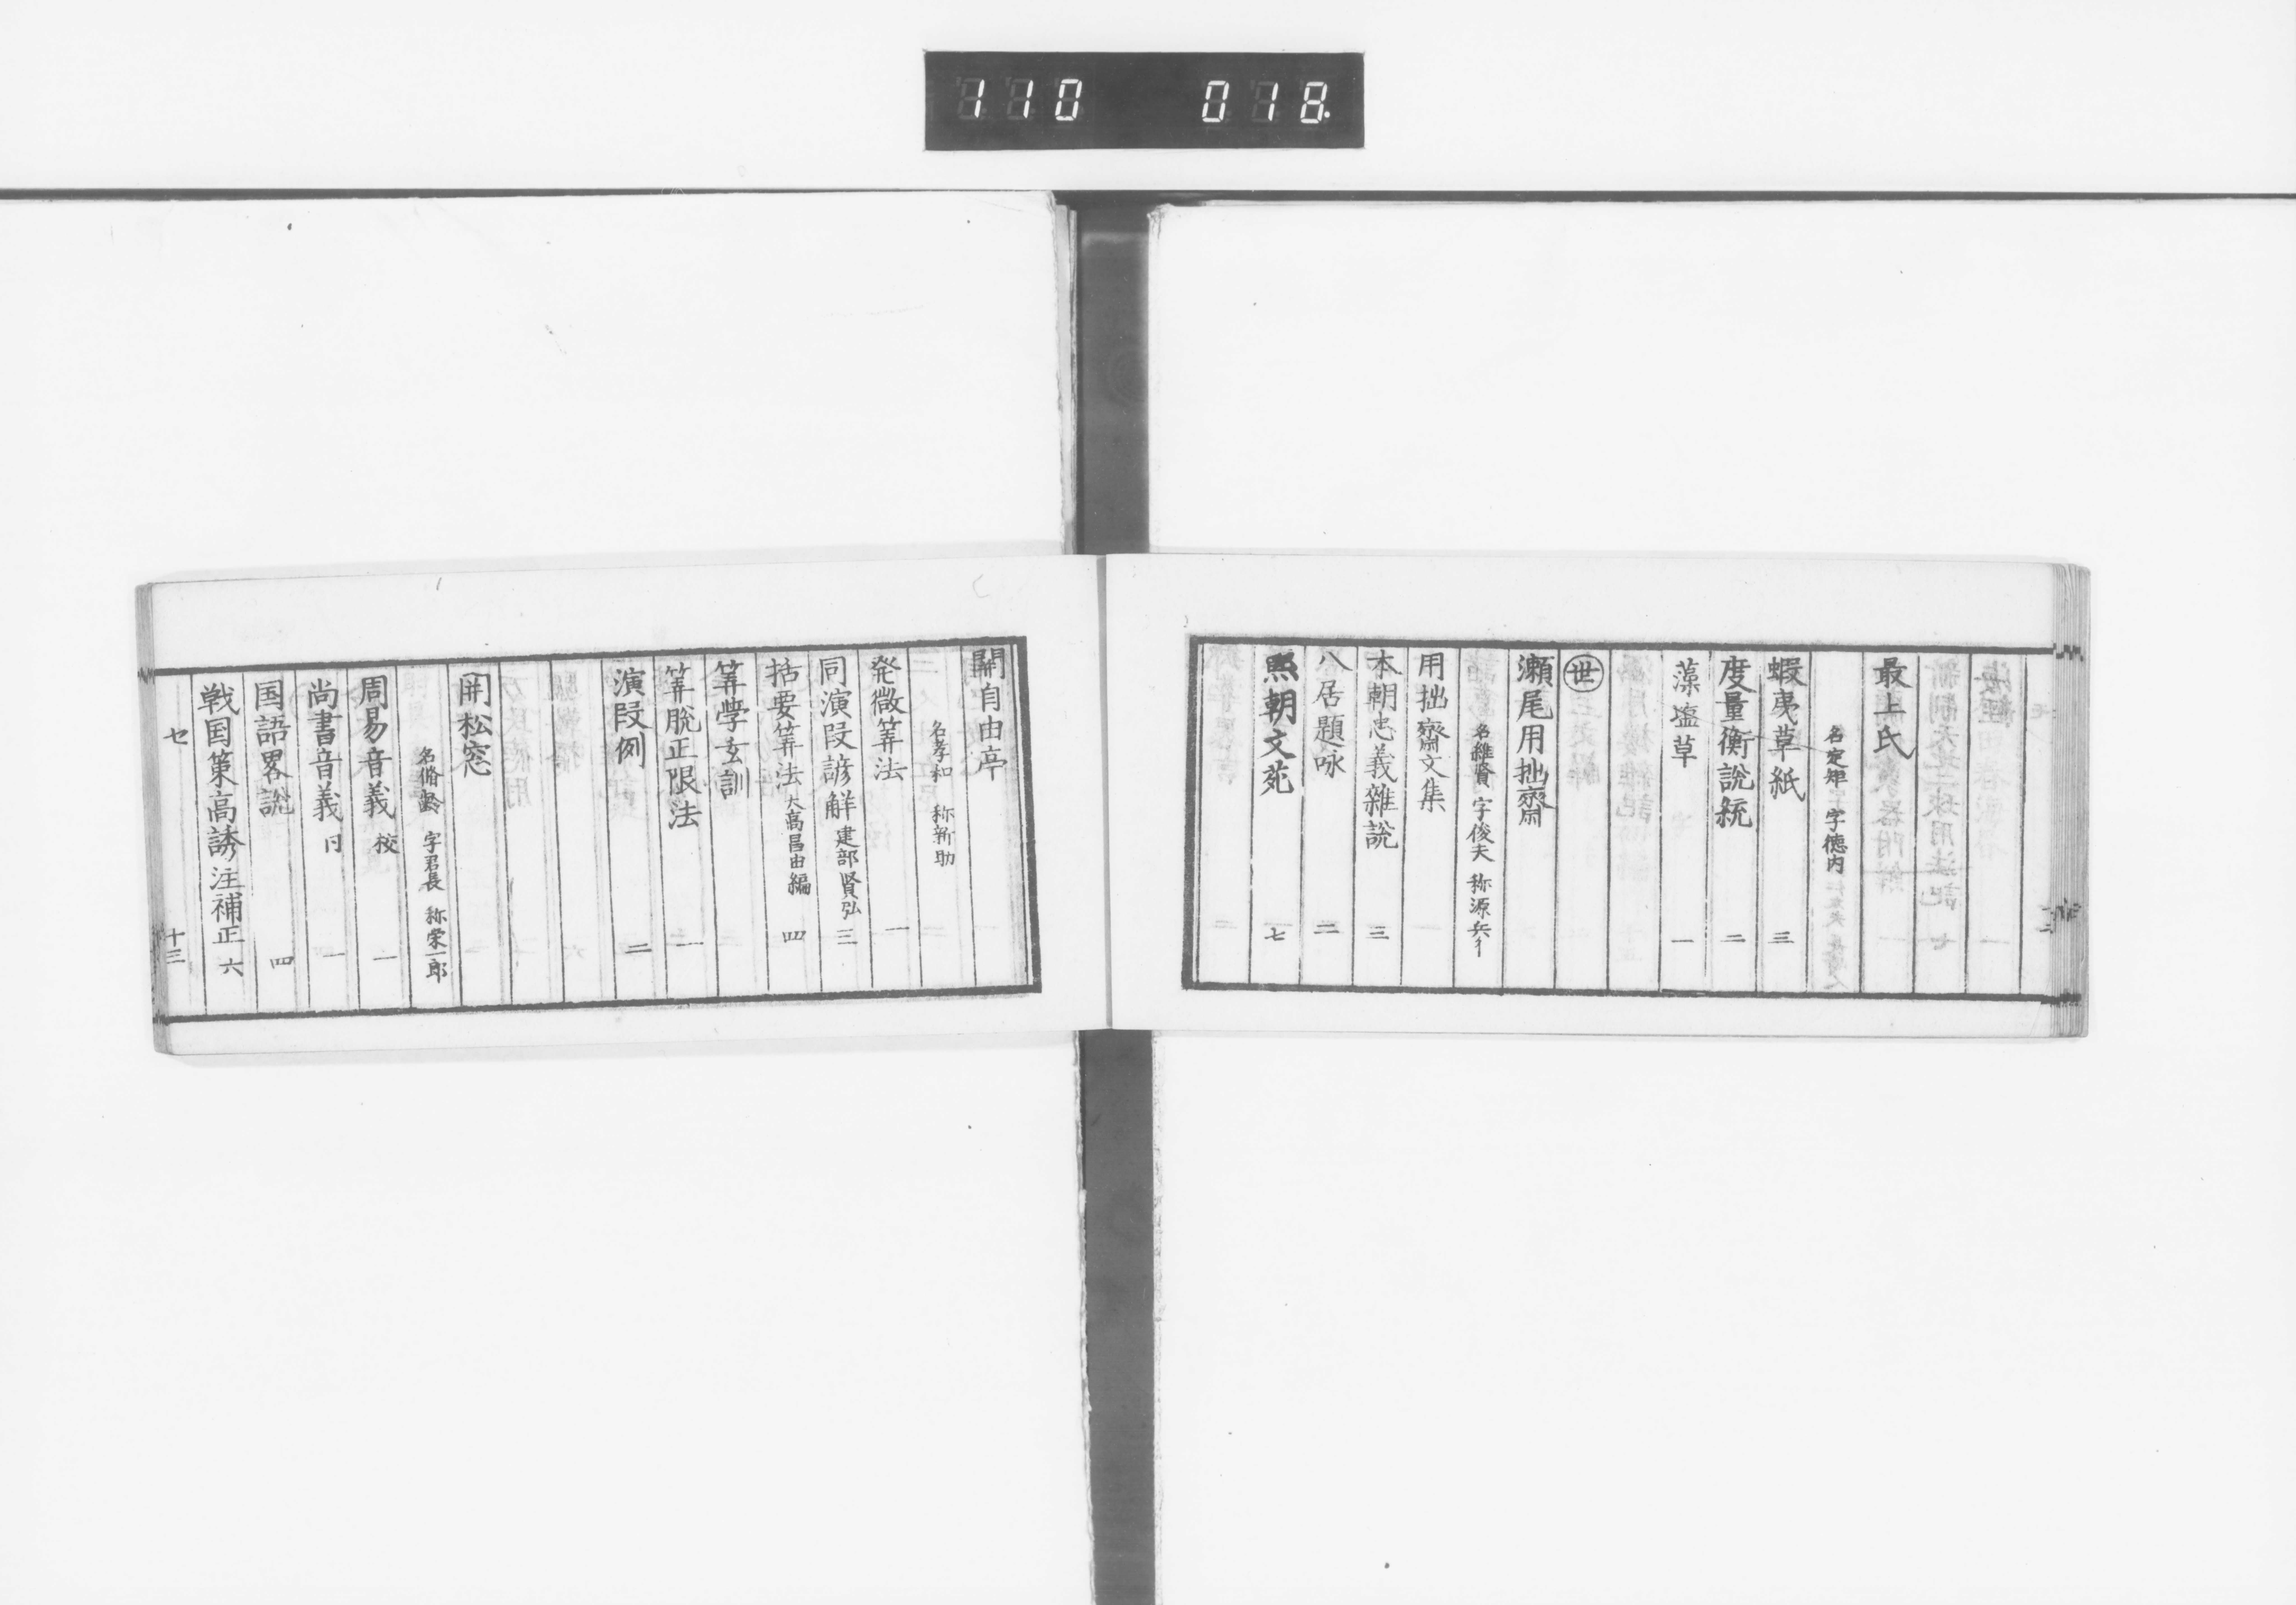 110 018
最上氏
名定矩 字徳内
蝦夷草紙 三
度量衡説統 二
藻塩草 一
世
瀬尾用拙斎
名維賢 字俊夫 称源兵衛
用拙斎文集
本朝忠義雑説 三
八居題咏 二
熈朝文苑 七
關自由亭
名孝和 称新助
発微筭法 一
同演段諺觧 建部賢弘 三
括要筭法 大高昌由編 四
筭学玄訓
筭脱正限法 一
演段例 二
関松窓
名脩齢 字君長 称栄一郎
周易音義 校 一
尚書音義 同 一
国語畧説 四
戦国策高誘注補正 六
セ 十三